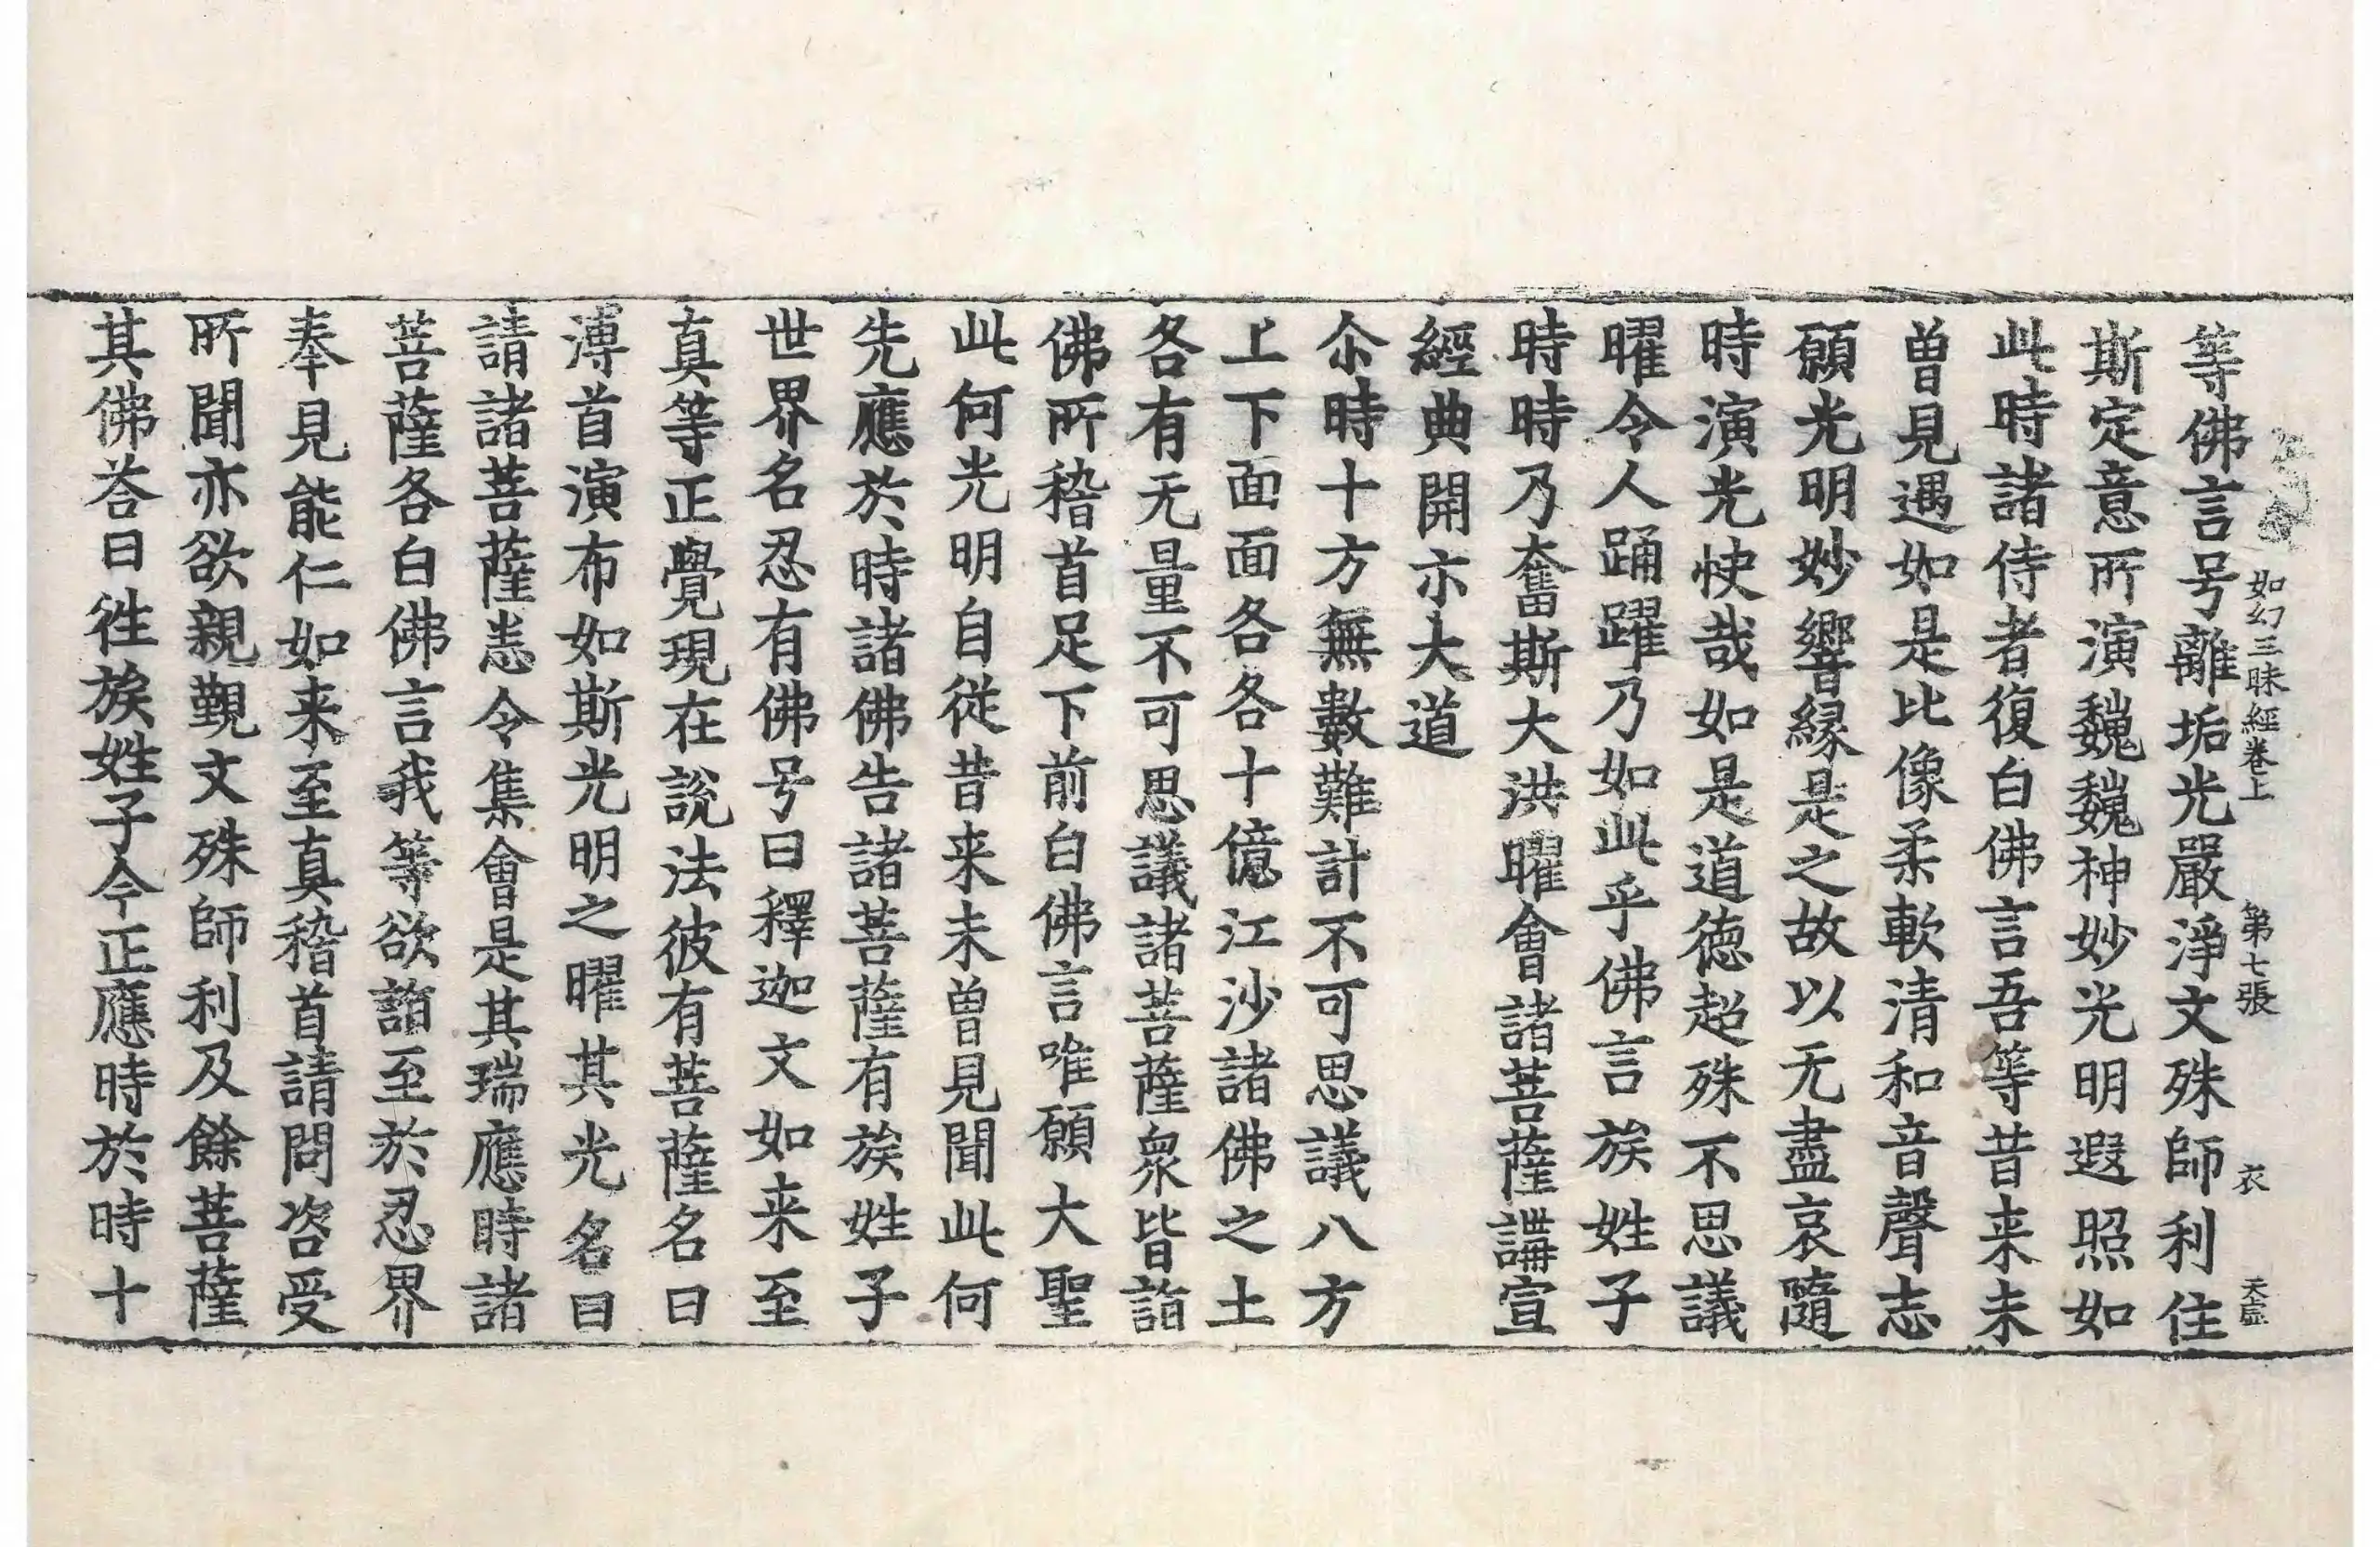 如幻三昧經卷上　第七張　衣　天虛
等佛言号離垢光嚴淨文殊師利住
斯定意所演巍巍神妙光明遐照如
此時諸侍者復白佛言吾等昔来未
曾見遇如是比像柔軟清和音聲志
願光明妙響縁是之故以无盡哀隨
時演光快哉如是道德超殊不思議
曜令人踊躍乃如此乎佛言族姓子
時時乃奮斯大洪曜會諸菩薩講宣
經典開亦大道
尒時十方無數難計不可思議八方
上下面面各各十億江沙諸佛之土
各有无量不可思議諸菩薩衆皆詣
佛所稽首足下前白佛言唯願大聖
此何光明自從昔来未曾見聞此何
先應於時諸佛告諸菩薩有族姓子
世界名忍有佛号曰釋迦文如来至
真等正覺現在說法彼有菩薩名曰
溥首演布如斯光明之曜其光名曰
請諸菩薩恚令集會是其瑞應時諸
菩薩各白佛言我等欲詣至於忍界
奉見能仁如来至真稽首請問咨受
所聞亦欲親覲文殊師利及餘菩薩
其佛荅曰徃族姓子今正應時於時十